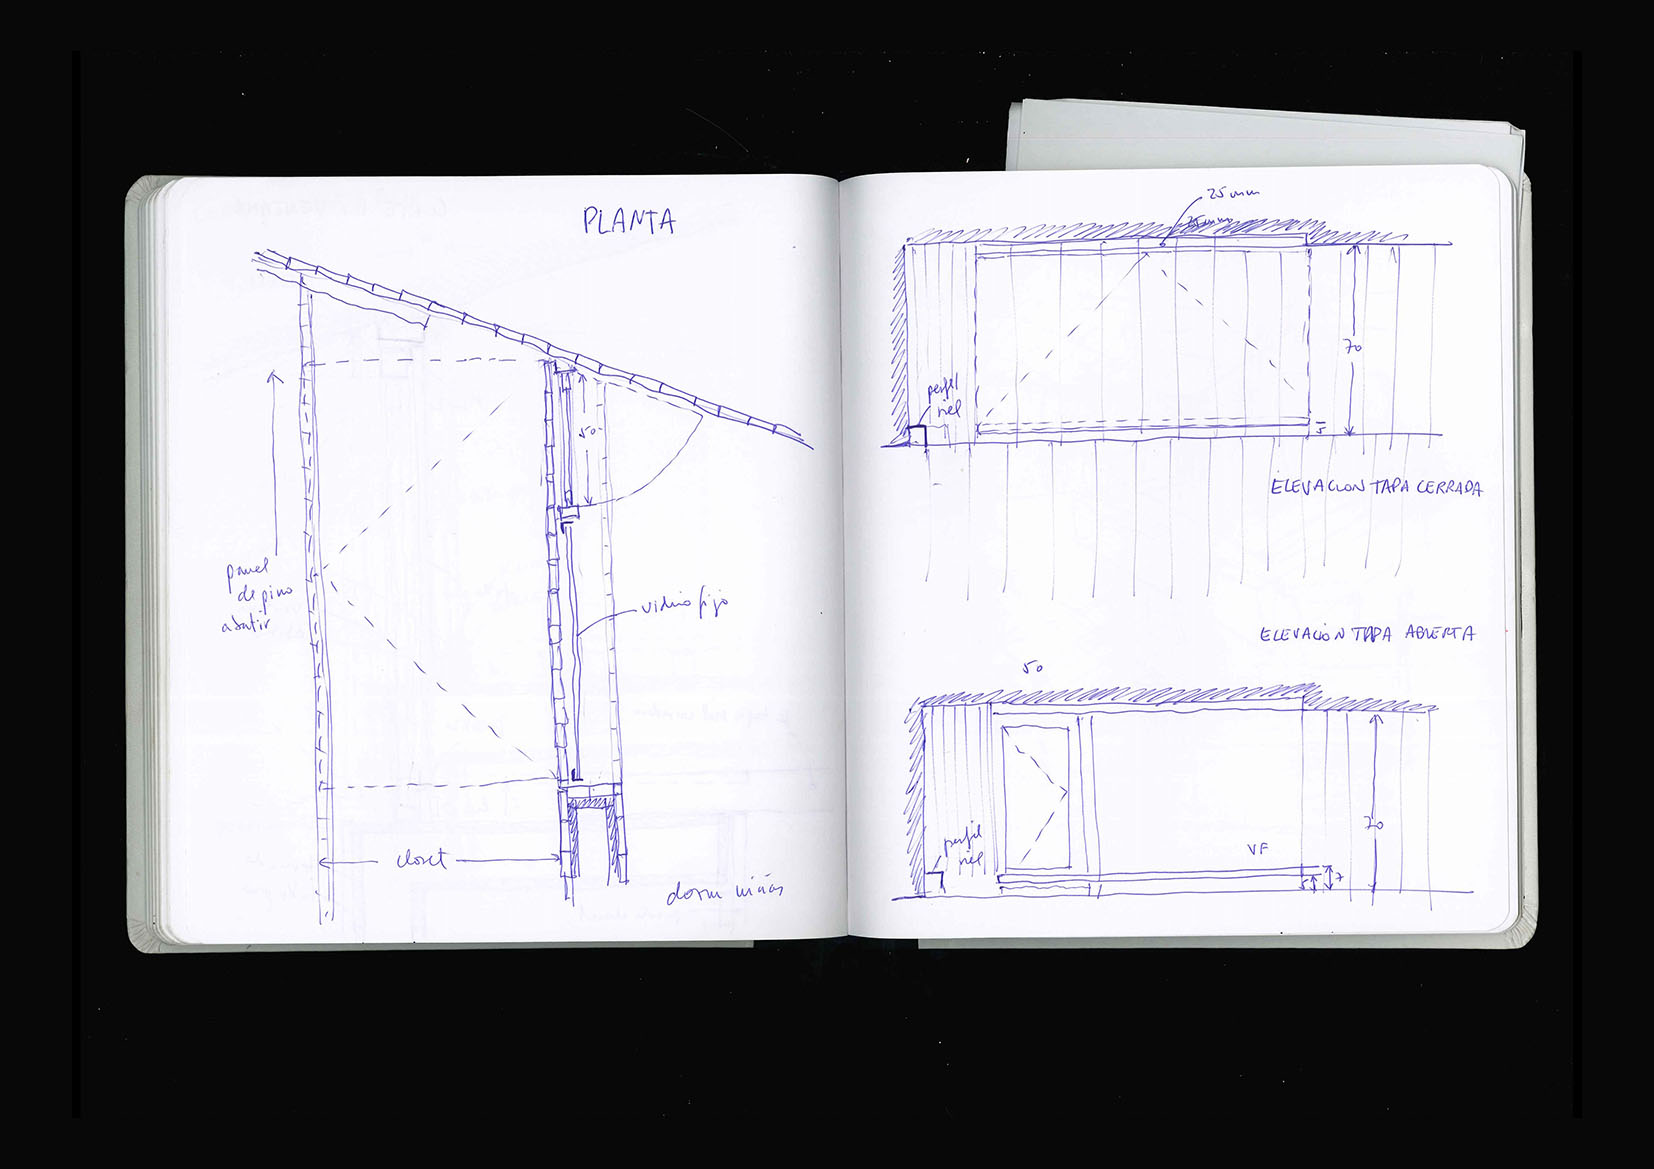 PLANTA
50
panel
de pino
abatir
vidrio fijo
closet
dorm niños
25mm
25mm
70
perfil
riel
5
ELEVACION TAPA CERRADA
ELEVACION TAPA ABIERTA
50
70
perfil
riel
VF
5
7